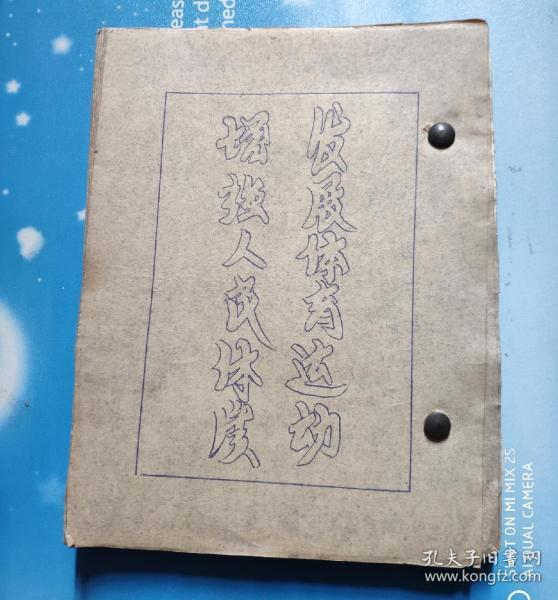 发展体育运动
增强人民体质
SHOT ON MI MIX 2S
AI DUAL CAMERA
孔夫子旧书网
www.kongfz.com